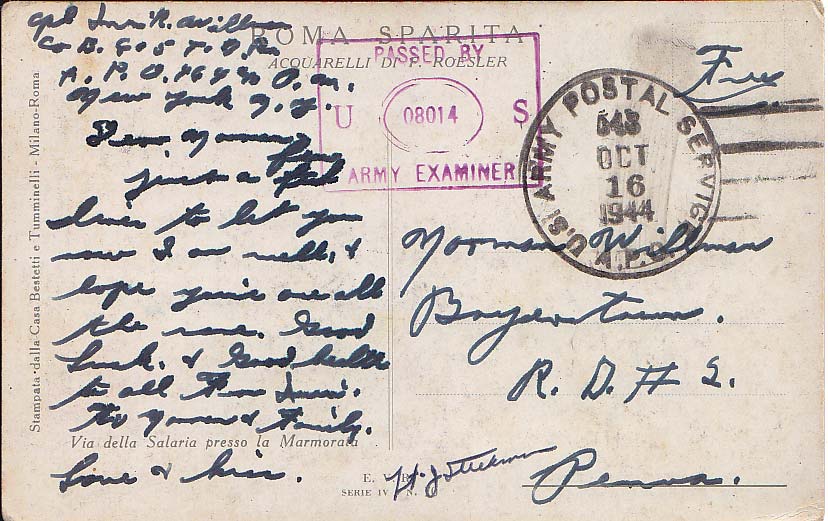 ROMA SPARITA
ACQUARELLI DI P. ROESLER
Cpl R. Willman
Co B. 805 T. D. Bn
A. P. O. 464 % P. M.
New York N. Y.
Dear Norman
just a
lines to let you
now I am well, &
hope you're are all
the same. Good
Luck. & Good health
to all From
To Norman & Family.
Love & kiss.
Via della Salaria presso la Marmorata
Stampata dalla Casa Bestetti e Tumminelli - Milano-Roma
PASSED BY
U 08014 S
ARMY EXAMINER
U.S. ARMY POSTAL SERVICE
A.P.O.
OCT
16
1944
Free
Norman Willman
Boyertown.
R. D. # 2.
Penna.
SERIE IV N.